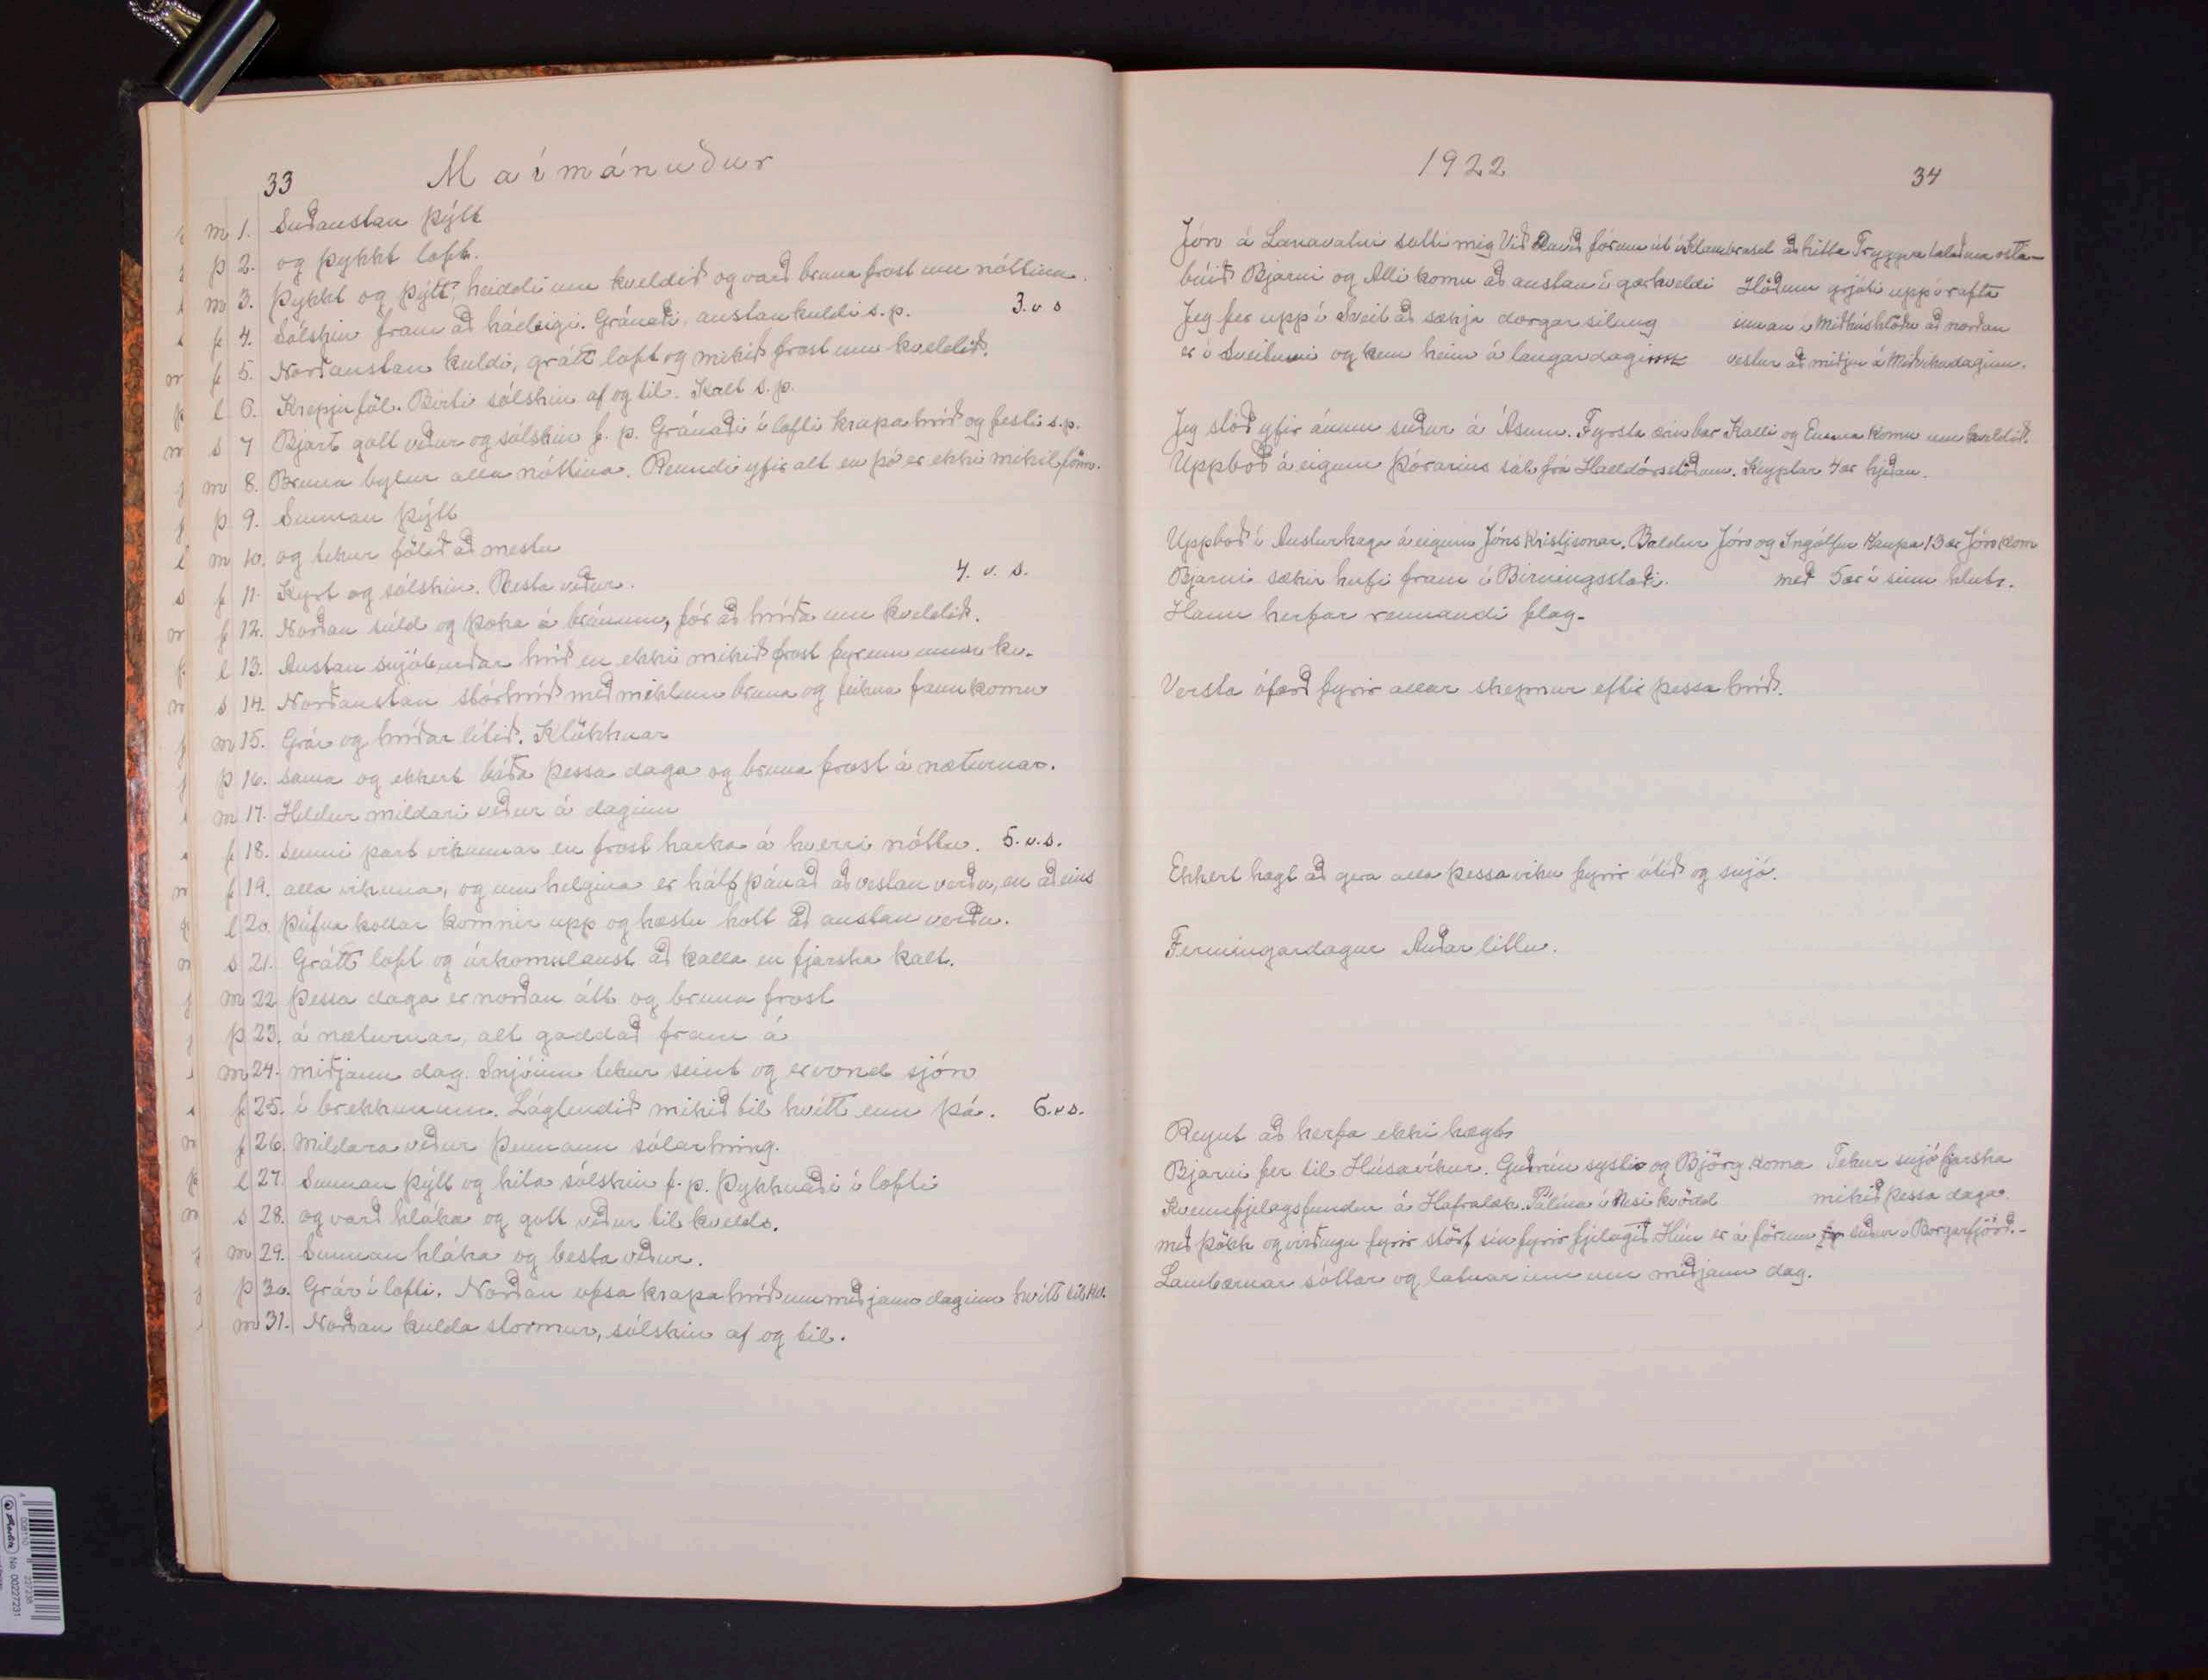 33
Maímánuður
m 1. Suðaustan þýtt
þ 2. og þykkt loft.
m 3. Þykkt og þýtt, heiddi um kveldið og varð bruna frost um nóttina.
f 4. Sólskin fram að hádeigi. Gránaði, austan kuldi s.p. 3. v s
f 5. Norðaustan kuldi, grátt loft og mikið frost um kveldið.
l 6. Krepju föl. Birti sólskin af og til. Kalt s.p.
s 7 Bjart gott veður og sólskin f. p. Gránaði í lofti krapa hríð og festi s.p.
m 8. Bruna bylur alla nóttina. Renndi yfir alt en þó er ekki mikil fönn.
þ 9. Sunnan þýtt
m 10. og tekur fölið að mestu
f 11. Kyrt og sólskin. Besta veður. 4. v. s.
f 12. Norðan súld og þoka á brúnum, fór að hríða um kveldið.
l 13. Austan snjóburðar hríð en ekki mikið frost fyr en undir kv.
s 14. Norðaustan stórhríð með miklum bruna og feikna fannkomu
m 15. Grár og hríðar lítið. Klökknar
þ 16. sama og ekkert báða þessa daga og bruna frost á næturnar.
m 17. Heldur mildari veður á daginn
f 18. seinni part vikunnar en frost harka á hverri nóttu. 5. v.s.
f 19. alla vikuna, og um helgina er hálf þánað að vestan verðu, en aðeins
l 20. þúfna kollar komnir upp og hæstu holt að austan verðu.
s 21. Grátt loft og úrkomulaust að kalla en fjarska kalt.
m 22 þessa daga er norðan átt og bruna frost
þ 23. á næturnar, alt gaddað fram á
m 24. miðjann dag. Snjóinn tekur seint og er vond sjón
f 25. í brekkunum. Láglendið mikið til hvítt enn þá. 6. v s.
f 26. Mildara veður þennann sólarhring.
l 27. Sunnan þýtt og hita sólskin f. p. Þykknaði í lofti
s 28. og varð hláka og gott veður til kvelds.
m 29. Sunnan hláka og besta veður.
þ 30. Grár í lofti. Norðan ofsa krapa hríð um miðjann daginn hvítt til kv.
m 31. Norðan kulda stormur, sólskin af og til.
1922
34
Jón á sótti mig Við Davíð fórum út í Klambrasel að hitta Tryggva
búið Bjarni og Alli komu að austan í gærkveldi Hlóðum grjóti upp í rafta
Jeg fer upp í Sveit að sækja dorgar silung innan í Miðhúshlöðu að norðan
er í Sveitinni og kem heim á laugardaginn vestur að miðju á Miðvikudaginn.
Jeg stóð yfir ánum suður á Ásum. Fyrsta ærin bar Kalli og Emma komu um kveldið.
Uppboð á eigum Þórarins sál. frá Halldórsstöðum. Keyptar 4 ær hjeðan.
Uppboð í Austurhaga á eigum Jóns Kristjsonar. Baldur Jón og Ingólfur Kaupa 13 ær Jón kom
Bjarni sækir herfi fram í Birningsstaði. með 5 ær í sinn hlut.
Hann herfar rennandi flag.
Versta ófærð fyrir allar skepnur eftir þessa hríð.
Ekkert hægt að gera alla þessa viku fyrir ótíð og snjó.
Fermingardagur Auðar litlu.
Reynt að herfa ekki hægt
Bjarni fer til Húsavíkur. Guðrún systir og Björg koma Tekur snjó fjarska
Kvennfjelagsfundur á Hafralæk. Pálína í Nesi kvödd mikið þessa daga.
með þökk og virðingu fyrir störf sín fyrir fjelagið. Hún er á förum suður í Borgarfjörð.-
Lambærnar sóttar og látnar inn um miðjann dag.
No. 00227231